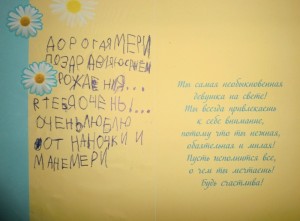 ДОРОГАЯ МЕРИ
ПОЗДРАВЛЯЮ С ДНЕМ
РОЖДЕНИЯ...
Я ТЕБЯ ОЧЕНЬ!...
ОЧЕНЬ ЛЮБЛЮ
ОТ НАНОЧКИ И
МАНЕ МЕРИ
Ты самая необыкновенная
девушка на свете!
Ты всегда привлекаешь
к себе внимание,
потому что ты нежная,
обаятельная и милая!
Пусть исполнится все,
о чем ты мечтаешь!
Будь счастлива!